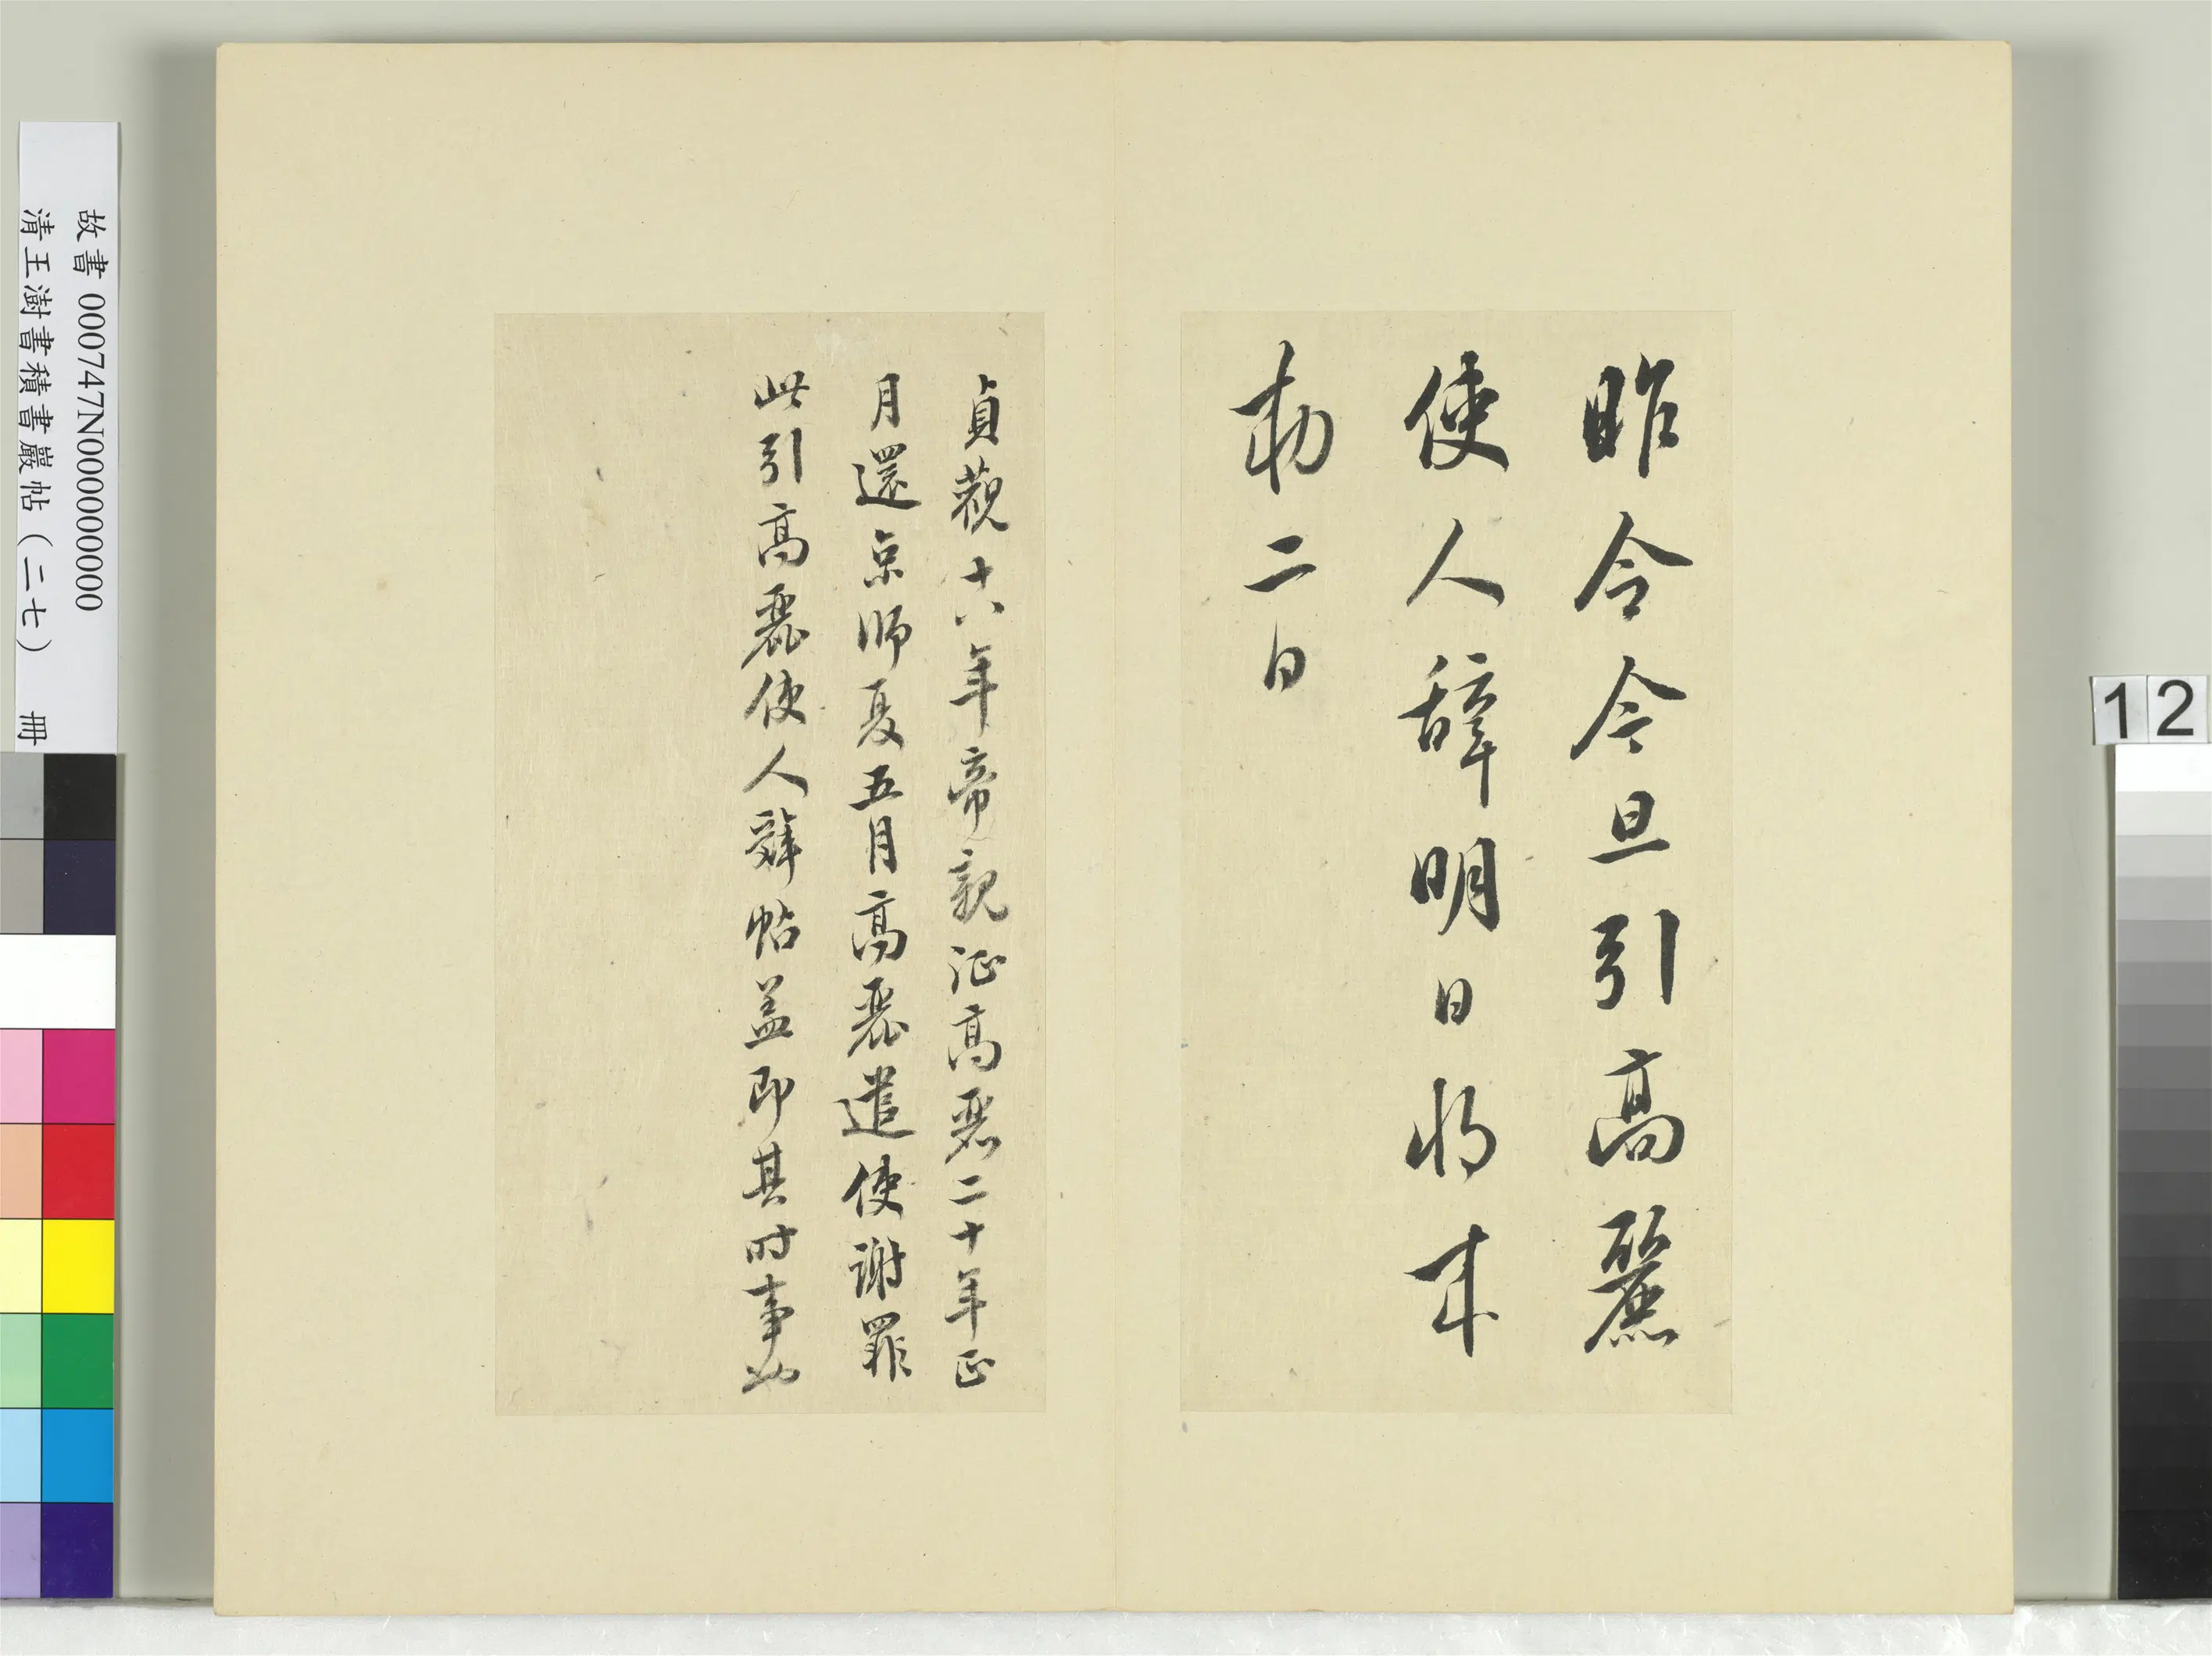 昨令今旦引高麗
使人辞明日将来
勅二日
貞觀十八年帝親征高麗二十年正
月還京師夏五月高麗遣使謝罪
此引高麗使人辭帖盖即其时事也
故書 000747N000000000
清王澍書積書巖帖(二七) 冊
12